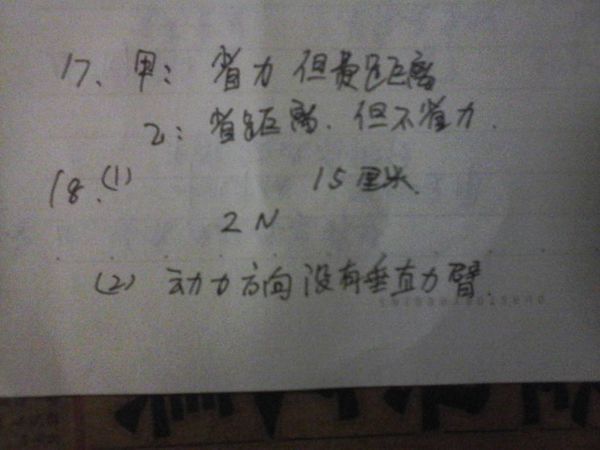 17、甲：省力但费距离
乙：省距离．但不省力．
18．(1) 15厘米．
2N
(2) 动力方向没有垂直力臂．